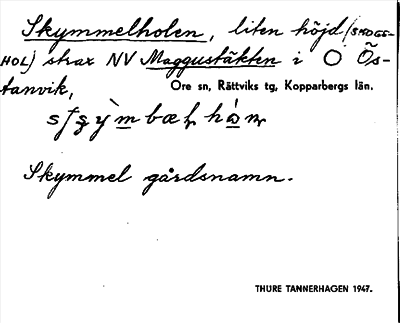 Skymmelholen, liten höjd (SKOGS-
HOL) strax NV Maggustäkten i O Ös-
tanvik,
Ore sn, Rättviks tg, Kopparbergs län.
Skymmel gårdsnamn.
THURE TANNERHAGEN 1947.